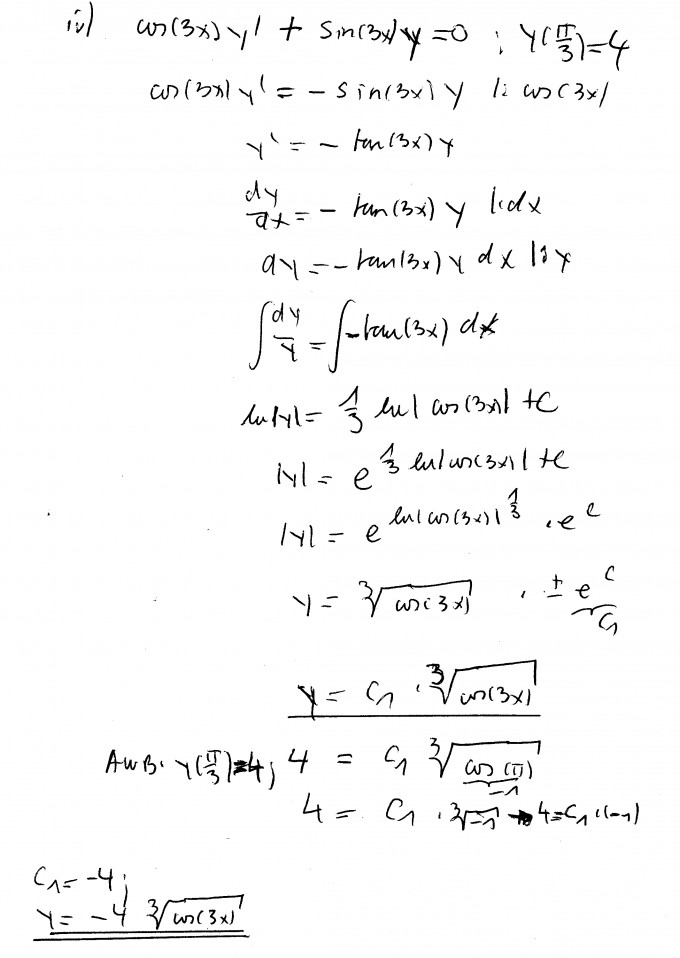 iv) cos(3x) y' + sin(3x) y = 0 ; y(π/3) = 4
cos(3x) y' = - sin(3x) y |: cos(3x)
y' = - tan(3x) y
dy/dx = - tan(3x) y |· dx
dy = - tan(3x) y dx |: y
∫ dy/y = ∫ -tan(3x) dx
ln|y| = 1/3 ln|cos(3x)| + C
|y| = e^(1/3 ln|cos(3x)| + C)
|y| = e^(ln|cos(3x)|^(1/3)) · e^C
y = ∛(cos(3x)) · ± e^C
C₁
y = C₁ · ∛(cos(3x))
AWB: y(π/3) = 4; 4 = C₁ ∛(cos(π))
-1
4 = C₁ · ∛(-1) → 4 = C₁ · (-1)
C₁ = -4;
y = -4 ∛(cos(3x))